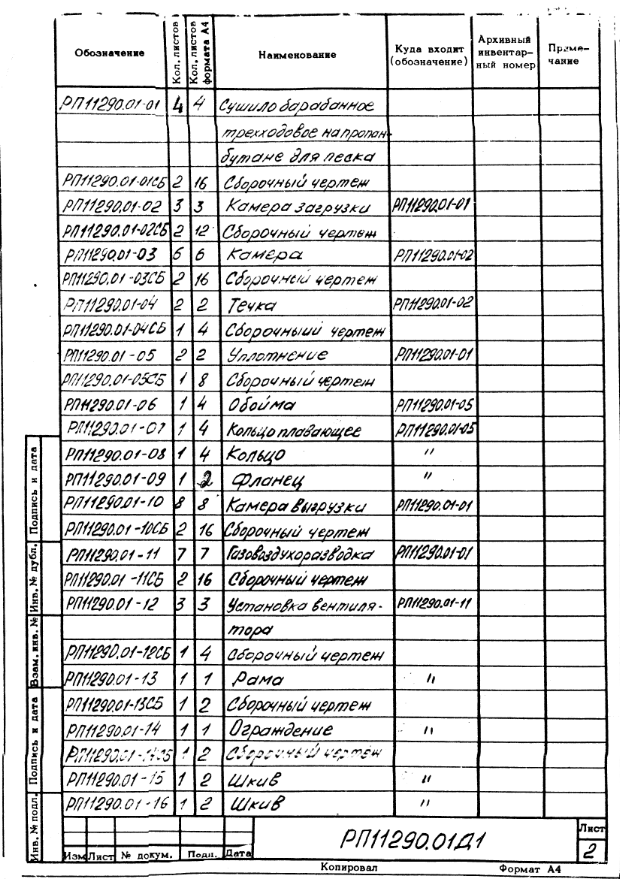 Обозначение Кол. листов Кол. листов формата А4 Наименование Куда входит (обозначение) Архивный инвентарный номер Примечание
РП11290.01-01 4 4 Сушило барабанное
трехходовое на пропан-
бутане для песка
РП11290.01-01СБ 2 16 Сборочный чертеж
РП11290.01-02 3 3 Камера загрузки РП11290.01-01
РП11290.01-02СБ 2 12 Сборочный чертеж
РП11290.01-03 6 6 Камера РП11290.01-02
РП11290.01-03СБ 2 16 Сборочный чертеж
РП11290.01-04 2 2 Течка РП11290.01-02
РП11290.01-04СБ 1 4 Сборочный чертеж
РП11290.01-05 2 2 Уплотнение РП11290.01-01
РП11290.01-05СБ 1 8 Сборочный чертеж
РП11290.01-06 1 4 Обойма РП11290.01-05
РП11290.01-07 1 4 Кольцо плавающее РП11290.01-05
РП11290.01-08 1 4 Кольцо "
РП11290.01-09 1 2 Фланец "
РП11290.01-10 8 8 Камера выгрузки РП11290.01-01
РП11290.01-10СБ 2 16 Сборочный чертеж
РП11290.01-11 7 7 Газовоздухоразводка РП11290.01-01
РП11290.01-11СБ 2 16 Сборочный чертеж
РП11290.01-12 3 3 Установка вентиля- РП11290.01-11
тора
РП11290.01-12СБ 1 4 Сборочный чертеж
РП11290.01-13 1 1 Рама "
РП11290.01-13СБ 1 2 Сборочный чертеж
РП11290.01-14 1 1 Ограждение "
РП11290.01-14СБ 1 2 Сборочный чертеж
РП11290.01-15 1 2 Шкив "
РП11290.01-16 1 2 Шкив "
Подпись и дата
Инв. № дубл.
Взам. инв. №
Подпись и дата
Инв. № подл.
РП11290.01Д1
Лист
2
Изм Лист № докум. Подп. Дата
Копировал Формат А4